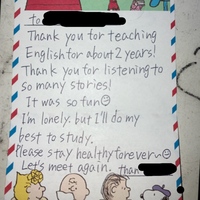 to
Thank you for teaching
English for about 2 years!
Thank you for listening to
so many stories!
It was so fun☺
I'm lonely. but I'll do my
best to study.
Please stay healthy forever~☺
Let's meet again.